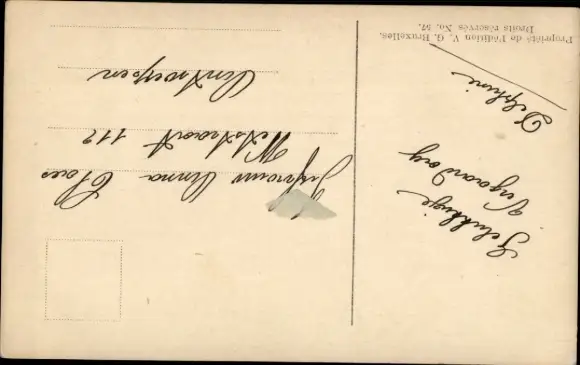 Gelukkige
Verjaardag
Delphine
Jufvrouw Anna Claes
Wetstraat 112
Antwerpen
Propriété de l'édition V. G. Bruxelles.
Droits réservés No. 57.